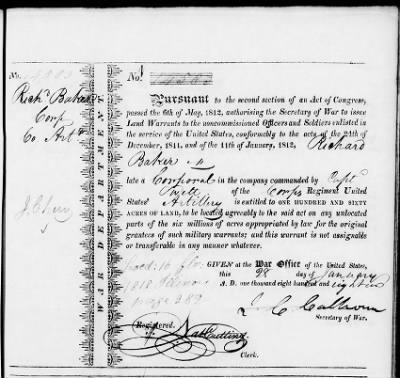 Richd Baker
Corp
Co Arty
WAR DEPARTMENT
Pursuant to the second section of an Act of Congress,
passed the 6th of May, 1812, authorising the Secretary of War to issue
Land Warrants to the noncommissioned Officers and Soldiers enlisted in
the service of the United States, conformably to the acts of the 24th
December, 1811, and of the 11th of January, 1812, Richard
Baker
late a Corporal in the company commanded by Captn
of the Corps Regiment United
States' Artillery is entitled to ONE HUNDRED AND SIXTY
ACRES OF LAND, to be located agreeably to the said act on any unlocated
parts of the six millions of acres appropriated by law for the original
grantees of such military warrants; and this warrant is not assignable
or transferable in any manner whatever.
GIVEN at the War Office of the United States,
this 28 day of January
1818 Illinois A. D. one thousand eight hundred and eighteen
page 389
J. C. Calhoun
Secretary of War.
Registered.
Nath Cutting
Clerk.